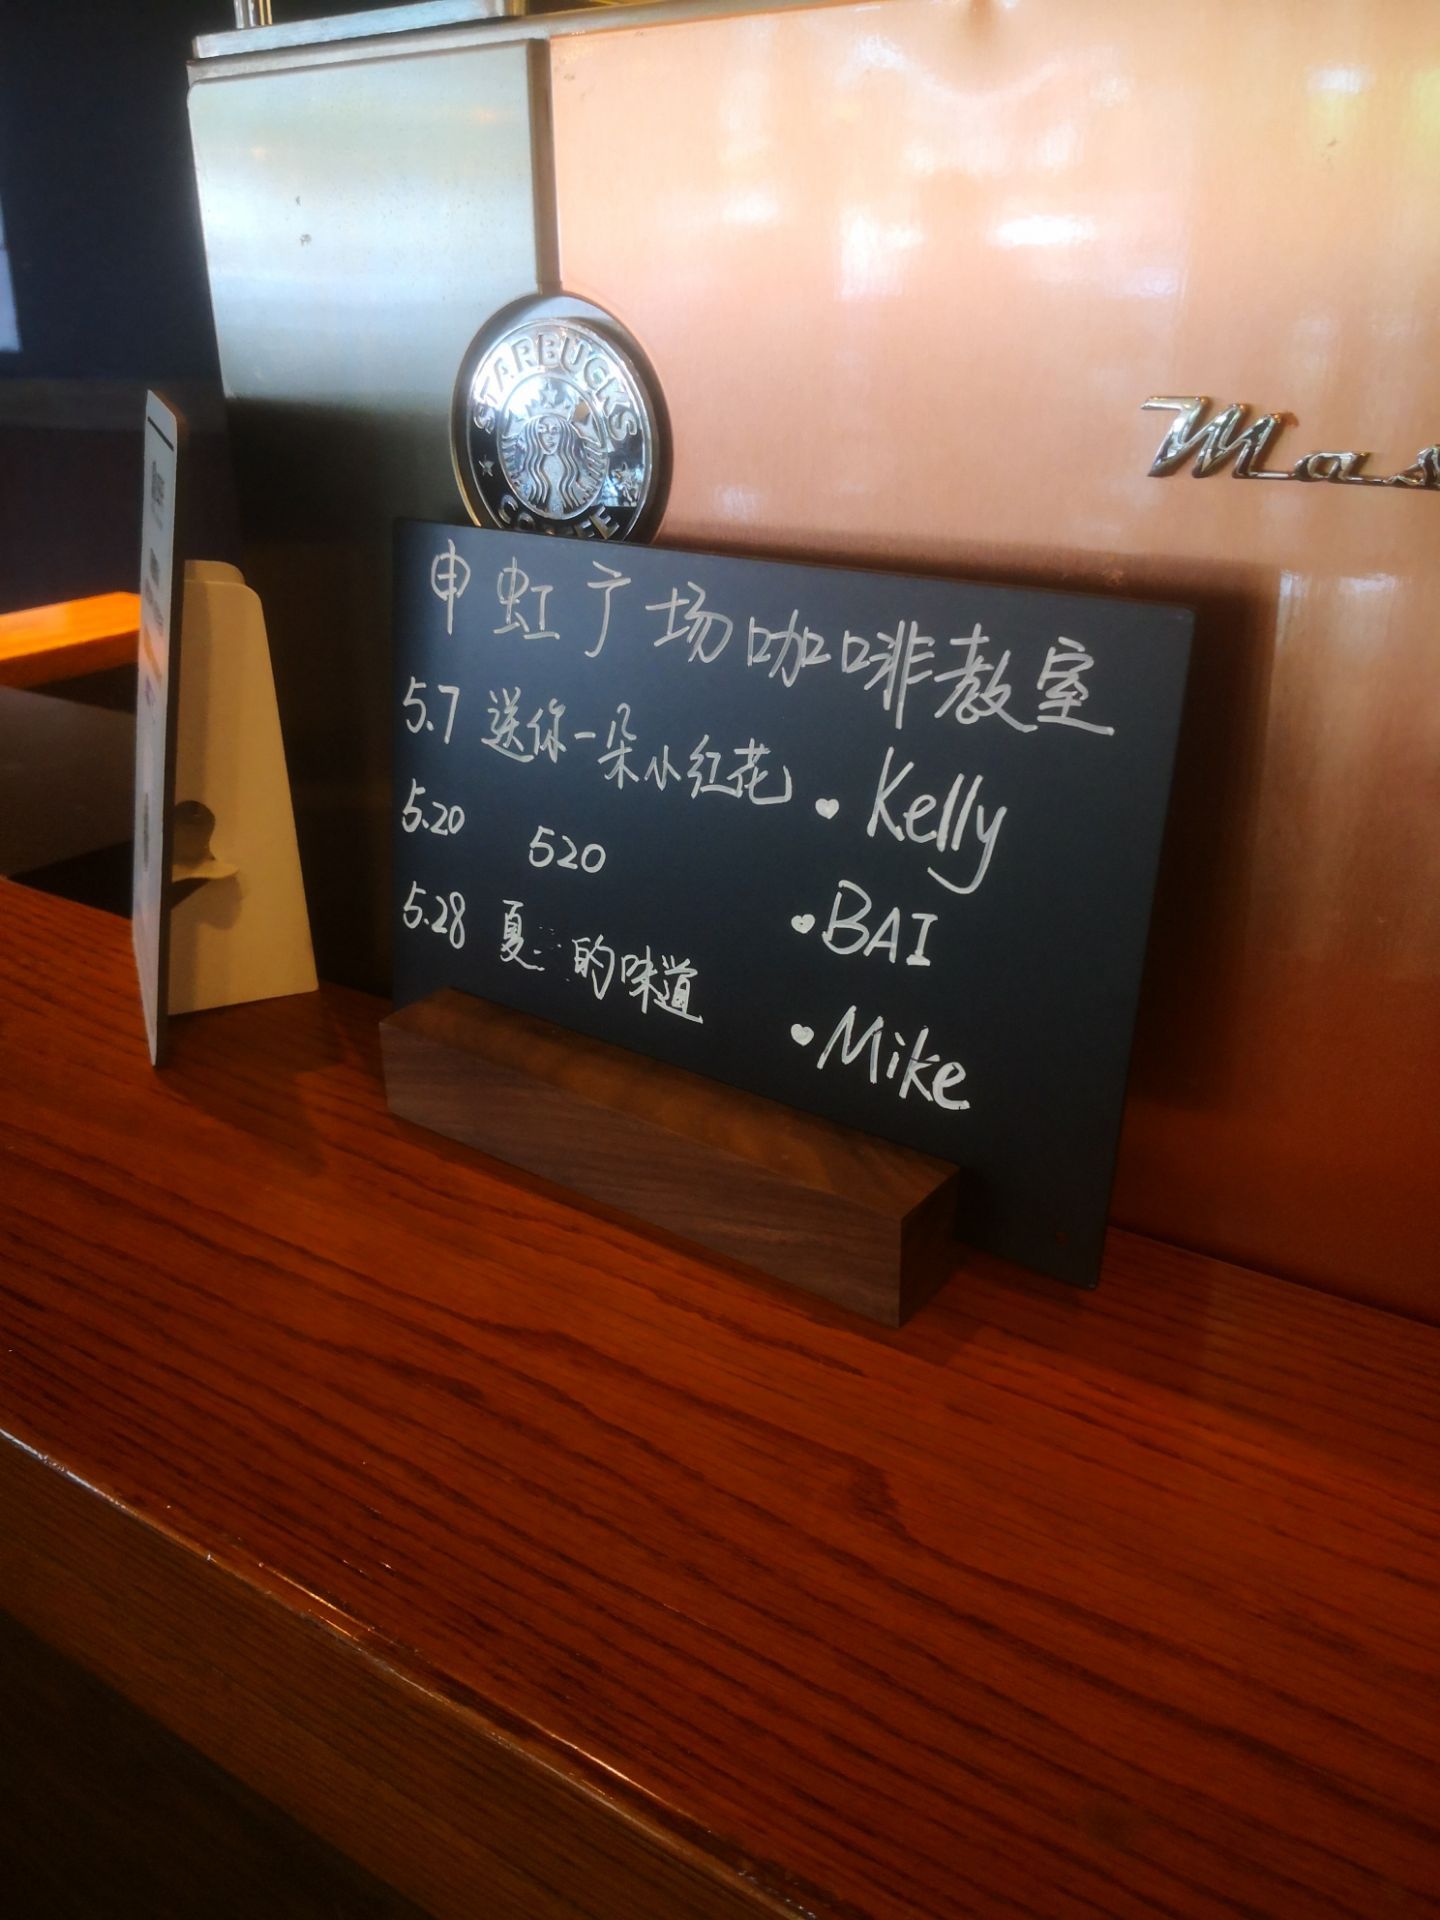 STARBUCKS COFFEE
Mas
申虹广场咖啡教室
5.7 送你一朵小红花 Kelly
5.20 520 BAI
5.28 夏 的味道 Mike